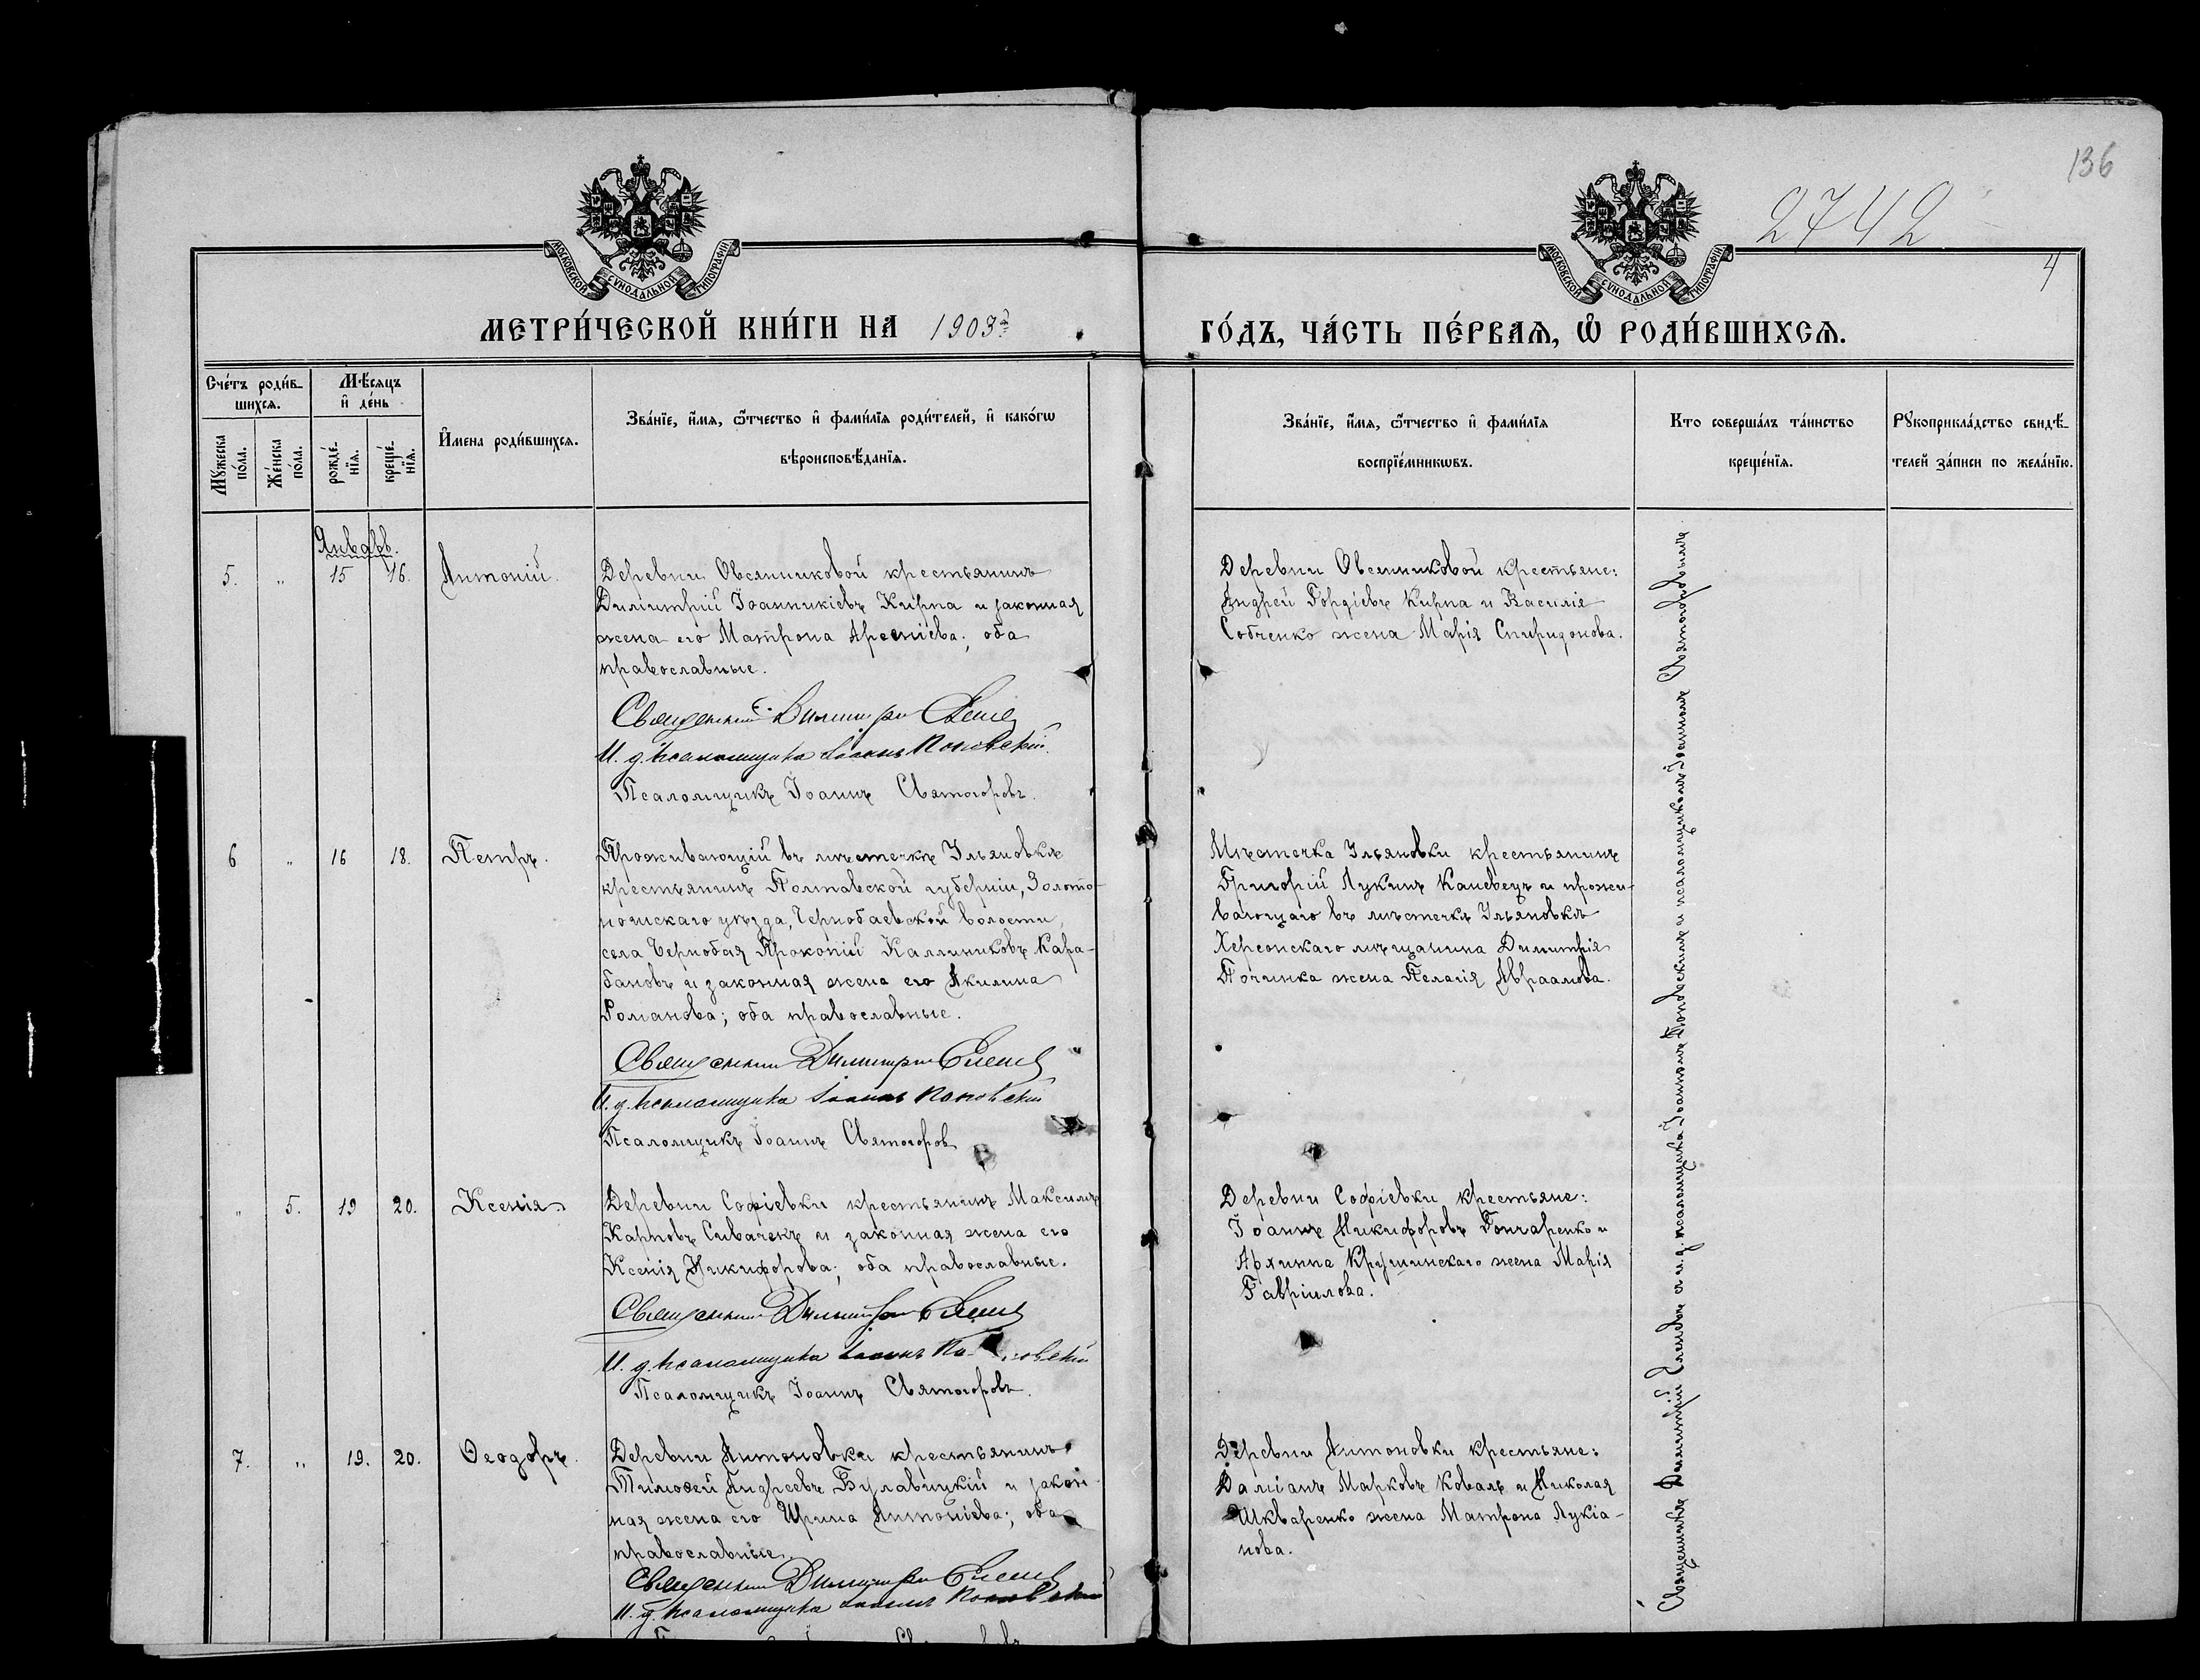 136
2742
4
МОСКОВСКОЙ СѴНОДАЛЬНОЙ ТИПОГРАФІИ
МОСКОВСКОЙ СѴНОДАЛЬНОЙ ТИПОГРАФІИ
МЕТРИ́ЧЕСКОЙ КНИ́ГИ НА 1903й
ГО́ДЪ, ЧА́СТЬ ПЕ́РВАѦ, Ѡ҆ РОДИ́ВШИХСѦ.
Сче́тъ роди́в-
шихсѧ.
Мꙋ́жеска
по́ла.
Же́нска
по́ла.
Мѣ́сѧцъ
и҆ де́нь
рожде́-
нїѧ.
креще́-
нїѧ.
И҆мена роди́вшихсѧ.
Зва́нїе, и҆́мѧ, ѻ҆́тчество и҆ фами́лїѧ роди́телей, и҆ како́гѡ
вѣроисповѣ́данїѧ.
Зва́нїе, и҆́мѧ, ѻ҆́тчество и҆ фами́лїѧ
воспрїе́мникѡвъ.
Кто соверша́лъ та́инство
креще́нїѧ.
Рꙋкоприкла́дство свидѣ́-
телей за́писи по жела́нїю.
Январь.
5. „ 15 16. Антоній.
Деревни Овсянниковой крестьянинъ
Димитрій Іоанникіевъ Кирпа и законная
жена его Матрона Арсеніева; оба
православные.
Священникъ Димитрій
И. д. псаломщика Іоаннъ Поповскій
Псаломщикъ Іоаннъ Святогоровъ.
Деревни Овсянниковой крестьяне:
Андрей Гордіевъ Кирпа и Василія
Собченко жена Марія Спиридонова.
6 „ 16 18. Петръ.
Проживающій въ мѣстечкѣ Ульяновкѣ
крестьянинъ Полтавской губерніи, Золото-
ношскаго уѣзда, Чернобаевской волости,
села Чернобая Прокопій Каллиниковъ Кара-
бановъ и законная жена его Акилина
Романова; оба православные.
Священникъ Димитрій
И. д. псаломщика Іоаннъ Поповскій
Псаломщикъ Іоаннъ Святогоровъ
Мѣстечка Ульяновки крестьянинъ
Григорій Лукинъ Каневецъ и прожи-
вающаго въ мѣстечкѣ Ульяновкѣ
Херсонскаго мѣщанина Димитрія
Починка жена Пелагія Авраамова.
„ 5. 19 20. Ксенія
Деревни Софіевки крестьянинъ Максимъ
Карповъ Сиваченъ и законная жена его
Ксенія Никифорова; оба православные.
Священникъ Димитрій
И. д. псаломщика Іоаннъ Поповскій
Псаломщикъ Іоаннъ Святогоровъ.
Деревни Софіевки крестьяне:
Іоаннъ Никифоровъ Гончаренко и
Архиппа Крушинскаго жена Марія
Гавріилова.
7. „ 19. 20. Ѳеодоръ.
Деревни Антоновки крестьянинъ
Тимоѳей Андреевъ Булавицкій и закон-
ная жена его Ирина Антоніева; оба
православные.
Священникъ Димитрій
И. д. псаломщика Іоаннъ Поповскій
Деревни Антоновки крестьяне:
Даміанъ Марковъ Коваль и Николая
Шкваренко жена Матрона Лукіа-
нова.
Священникъ Димитрій и и. д. псаломщика Іоанномъ Поповскимъ и псаломщикомъ Іоанномъ Святогоровымъ